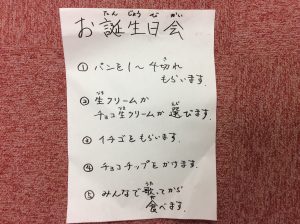 お誕生日会
① パンを1〜4切れ
もらいます。
② 生クリームか
チョコ生クリームか選びます。
③ イチゴをもらいます。
④ チョコチップをかけます。
⑤ みんなで歌ってから
食べます。